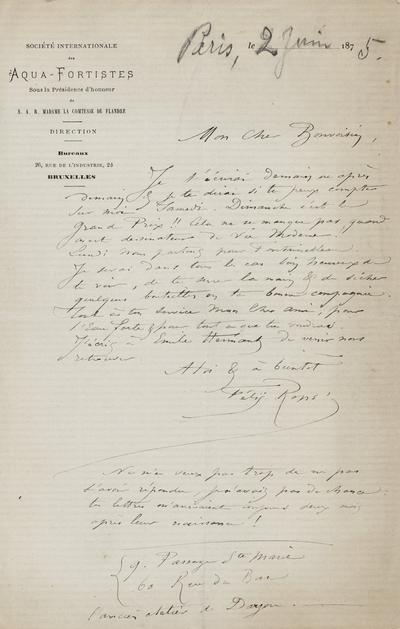 SOCIÉTÉ INTERNATIONALE
des
AQUA-FORTISTES
Sous la Présidence d'honneur
de
S. A. R. MADAME LA COMTESSE DE FLANDRE
DIRECTION
Bureaux
26, RUE DE L'INDUSTRIE, 24
BRUXELLES
Paris, le 2 Juin 1875.
Mon Cher Bonvoisin,
Je t'écrirai demain ou après
demain & te dirai si tu peux compter
sur moi Samedi. Dimanche c'est le
Grand Prix!! Cela ne se manque pas quand
on est dessinateur de Vie Moderne.
Lundi nous partons pour Fontainebleau.
Je serai dans tous les cas bien heureux de
te voir, de te serrer la main & de sécher
quelques bouteilles en ta bonne compagnie.
Tout à ton service mon cher ami, pour
l'Eau forte & pour tout ce que tu voudras.
J'écris à Emile Hermant de venir nous
retrouver
A toi & à bientôt
Félix Rops
Ne m'en veux pas trop de ne pas
t'avoir répondu, je n'avais pas de chance
tes lettres m'arrivaient toujours deux mois
après leur naissance!
9. Passage Ste Marie
60 Rue du Bac
l'ancien atelier de